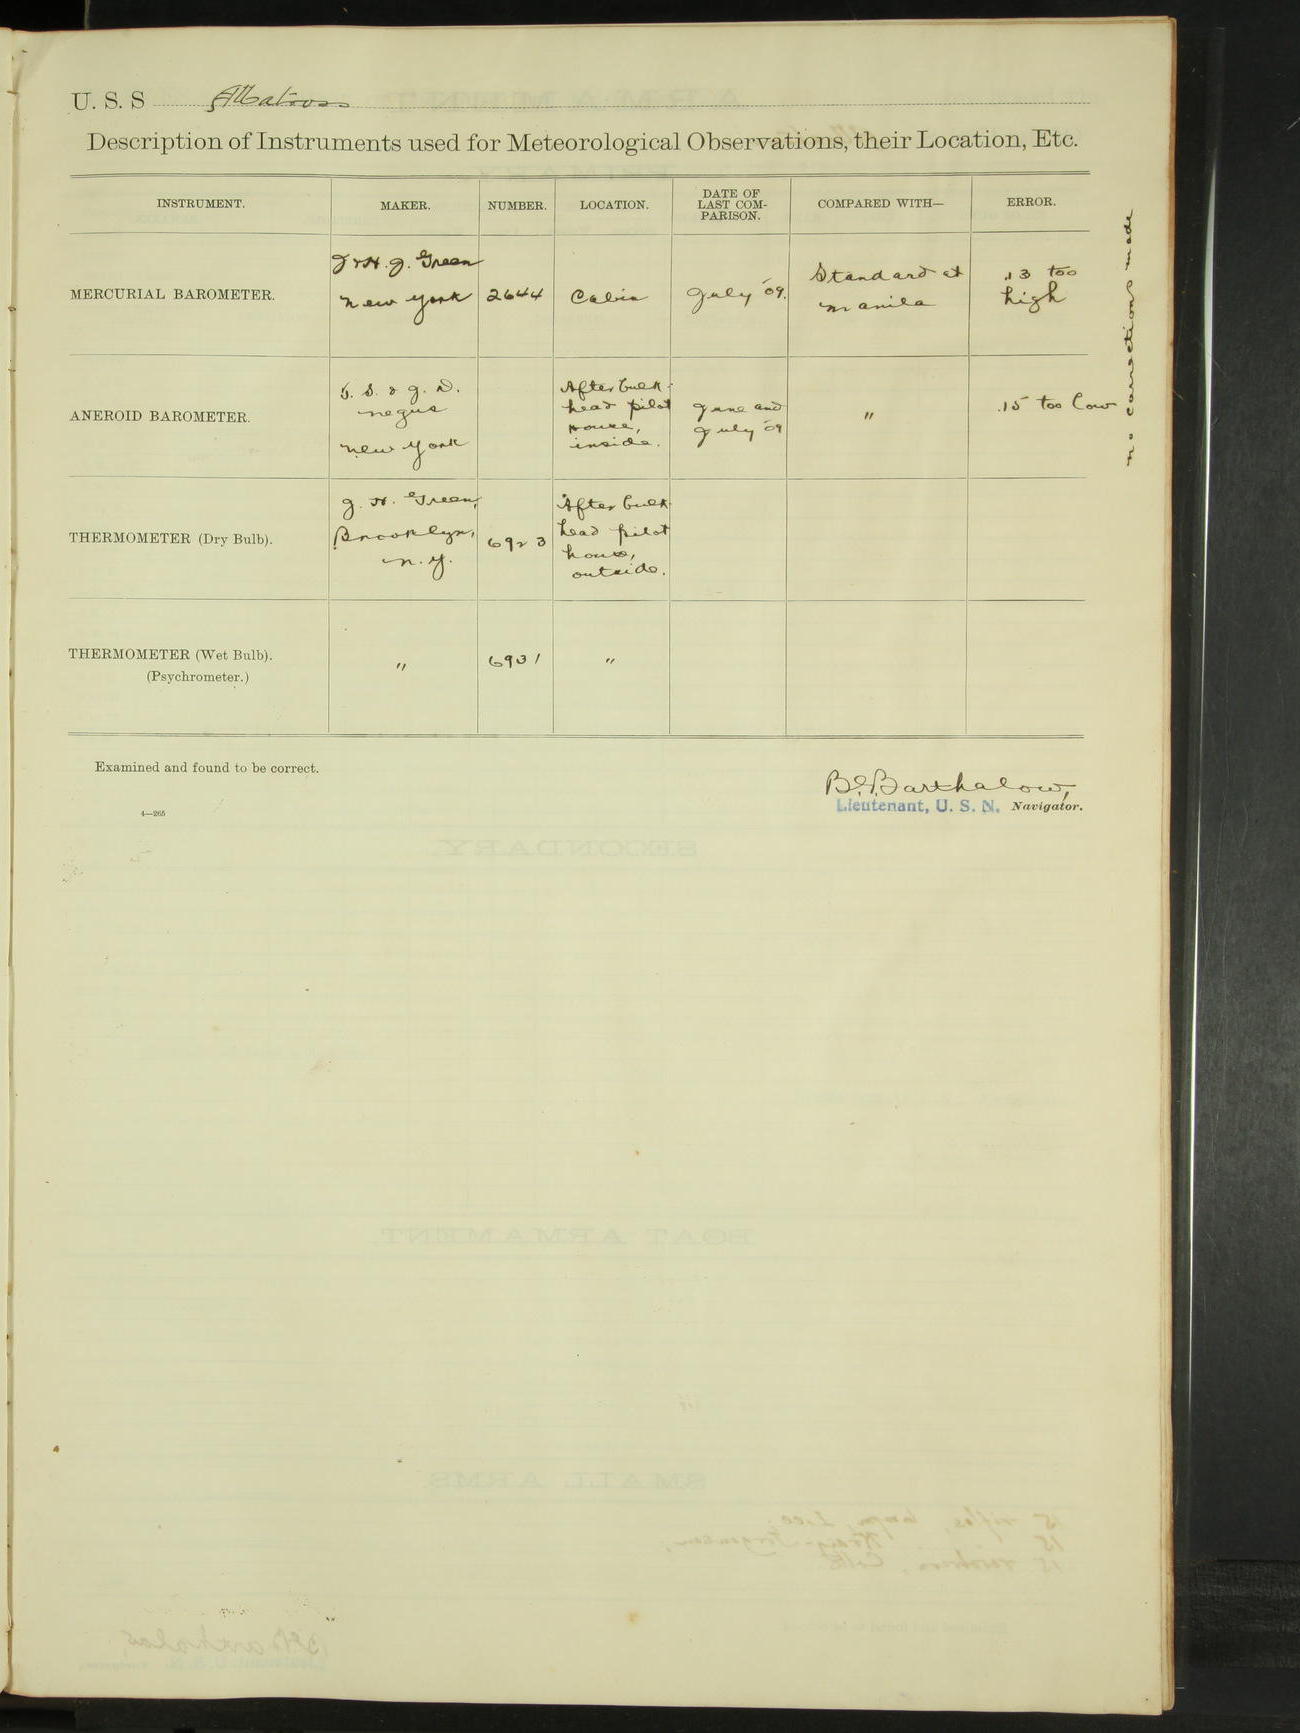 U. S. S Albatross
Description of Instruments used for Meteorological Observations, their Location, Etc.
INSTRUMENT. MAKER. NUMBER. LOCATION. DATE OF LAST COM-PARISON. COMPARED WITH— ERROR.
MERCURIAL BAROMETER.
J & H. J. Green
New York
2644
Cabin
July '09.
Standard at
Manila
.13 too
high
ANEROID BAROMETER.
T. S. & J. D.
Negus
New York
After bulk-
head pilot
house,
inside.
June and
July '09
"
.15 too low
THERMOMETER (Dry Bulb).
J. H. Green,
Brooklyn,
N. Y.
6923
After bulk-
head pilot
house,
outside.
THERMOMETER (Wet Bulb).
(Psychrometer.)
"
6931
"
no corrections made
Examined and found to be correct.
Barthalow,
Lieutenant, U. S. N. Navigator.
4—265
SECONDARY.
BOAT ARMAMENT.
SMALL ARMS.